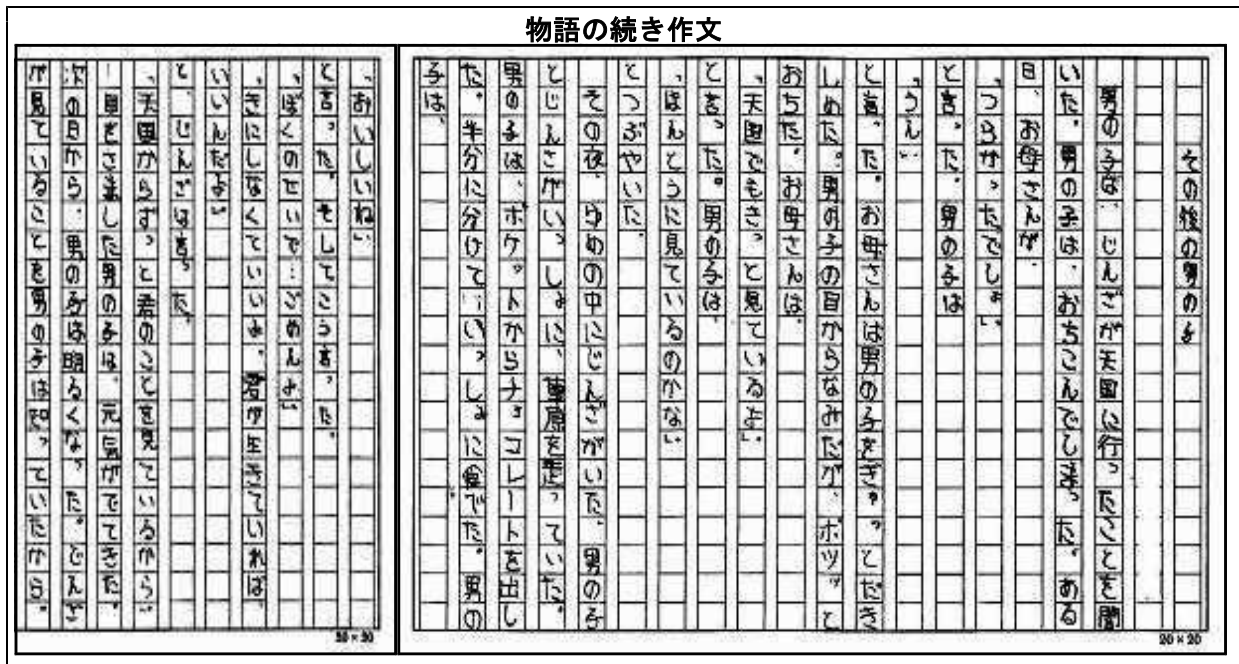 物語の続き作文
その後の男の子
男の子は、じんざが天国に行ったことを聞
いた。男の子は、おちこんでしまった。ある
日、お母さんが、
「つらかったでしょ。」
と言った。男の子は
「うん」
と言った。お母さんは男の子をぎゅっとだき
しめた。男の子の目からなみだが、ポツッと
おちた。お母さんは、
「天国でもきっと見ているよ。」
と言った。男の子は、
「ほんとうに見ているのかな」
とつぶやいた。
その夜、ゆめの中にじんざがいた、男の子
とじんざがいっしょに、草原を走っていた。
男の子は、ポケットからチョコレートを出し
た。半分に分けて、いっしょに食べた。男の
子は、
20×20
「おいしいね」
と言った。そしてこう言った。
「ぼくのせいで…ごめんよ」
「きにしなくていいよ。君が生きていれば
いいんだよ」
と、じんざは言った。
「天国からずっと君のことを見ているから」
目をさました男の子は、元気がでてきた。
次の日から、男の子は明るくなった。じんざ
が見ていることを男の子は知っていたから。
20×20